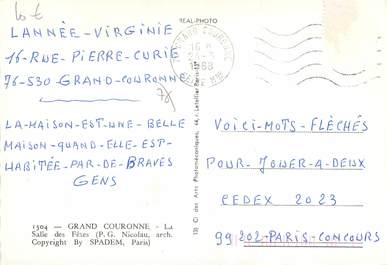 10 €
REAL-PHOTO
LANNÉE-VIRGINIE
16-RUE-PIERRE-CURIE
76-530-GRAND-COURONNE
76
GRAND COURONNE
16 H
1988
LA-MAISON-EST-UNE-BELLE
MAISON-QUAND-ELLE-EST-
HABITÉE-PAR-DE-BRAVES
GENS
1504 — GRAND COURONNE - La
Salle des Fêtes (P. G. Nicolau, arch.
Copyright By SPADEM, Paris)
des Arts Photomécaniques, 44,
VOICI-MOTS-FLÈCHÉS
POUR-JOUER-A-DEUX
CEDEX 2023
99202-PARIS-CONCOURS